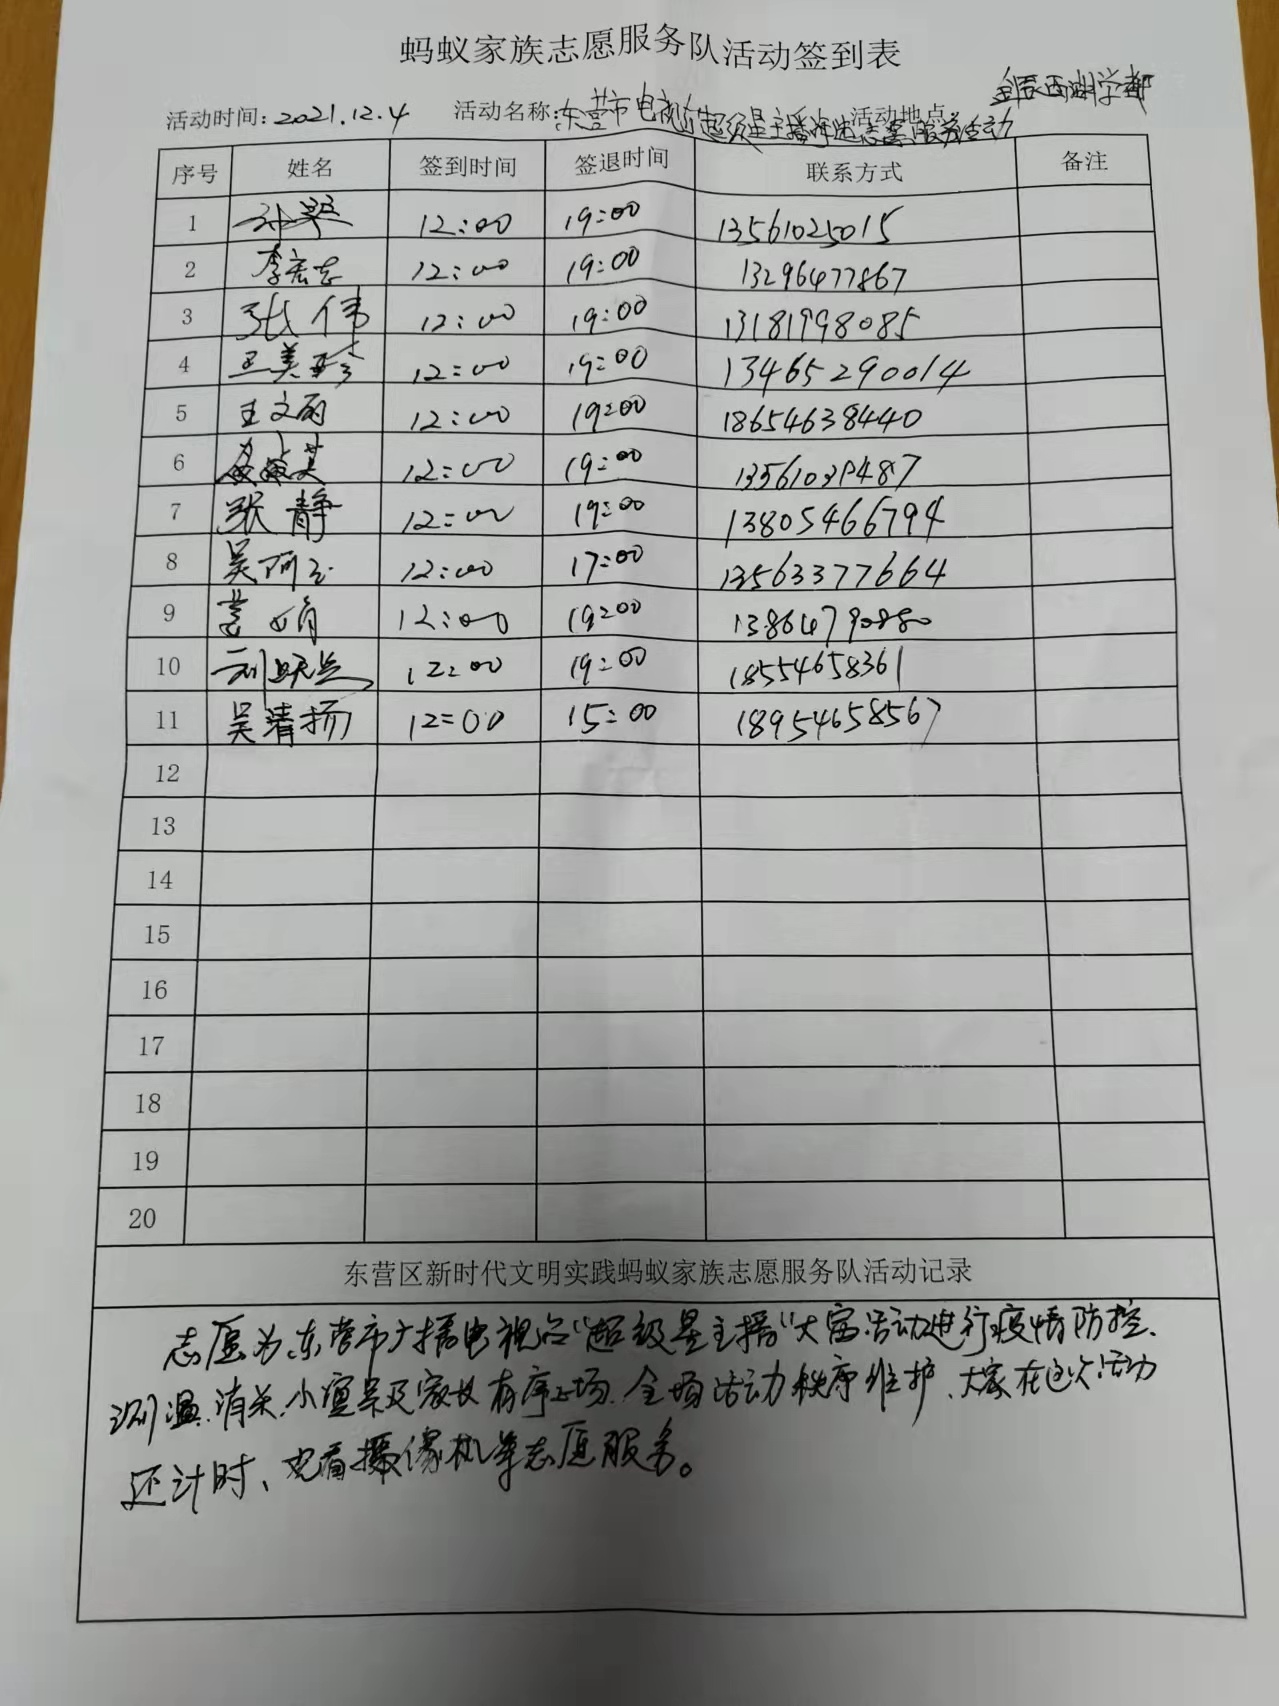 蚂蚁家族志愿服务队活动签到表
活动时间:2021.12.4 活动名称:东营市电视台超级星主播 志愿服务活动 活动地点: 金辰西湖学都
序号 姓名 签到时间 签退时间 联系方式 备注
1 孙翠 12:00 19:00 13561025015
2 李宏志 12:00 19:00 13296477867
3 张伟 12:00 19:00 13181998085
4 王美玲 12:00 19:00 13465290014
5 王文丽 12:00 19:00 18654638440
6 12:00 19:00
7 张静 12:00 19:00 13805466794
8 吴阿玉 12:00 17:00 13563377664
9 娟 12:00 19:00 13864790880
10 刘 12:00 19:00 18554658361
11 吴清扬 12:00 15:00 18954658567
12
13
14
15
16
17
18
19
20
东营区新时代文明实践蚂蚁家族志愿服务队活动记录
志愿为东营市广播电视台“超级星主播”大赛活动进行疫情防控、
测温、消杀、小演员及家长有序上场、全场活动秩序维护、大家在这次活动
还计时、看摄像机等志愿服务。